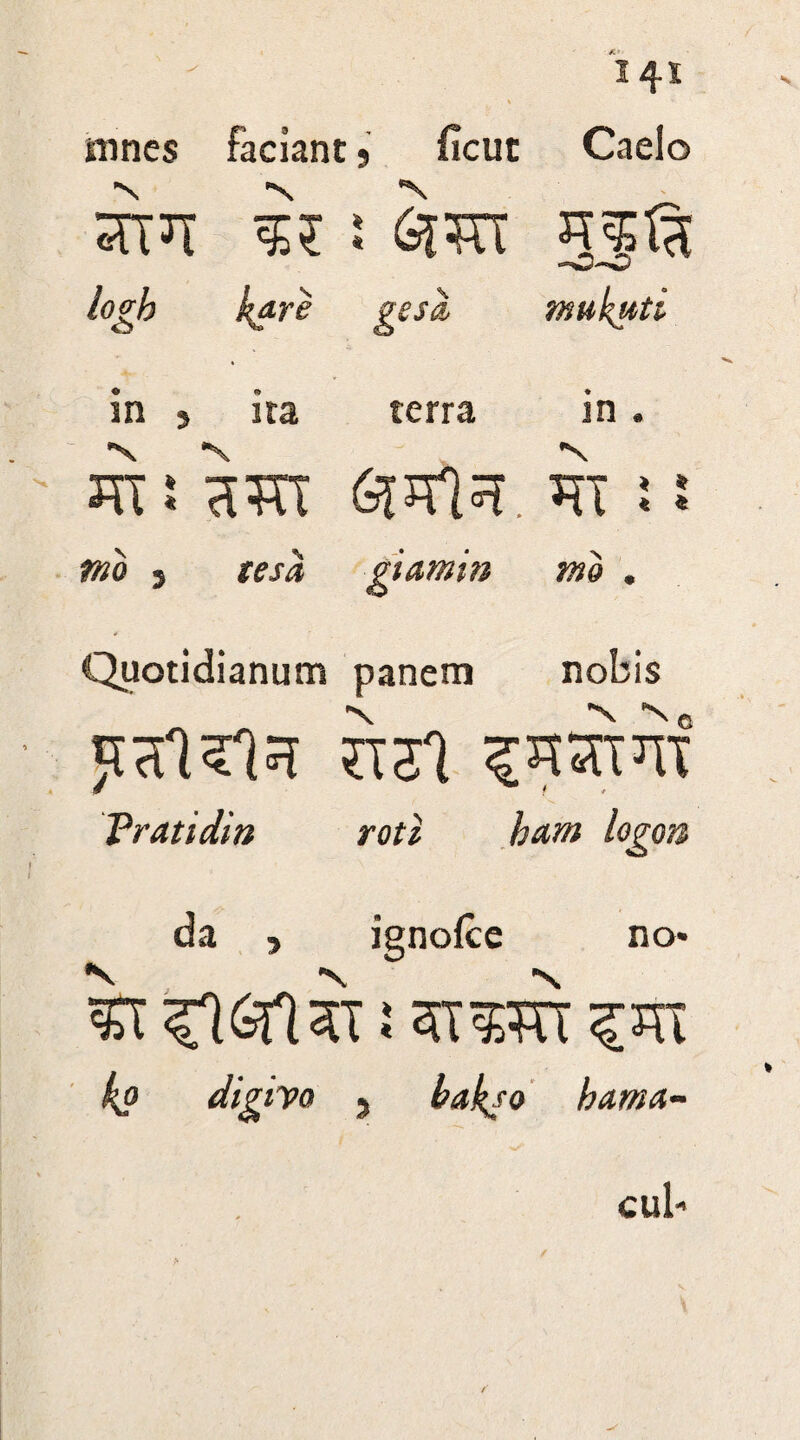 141
mnes faciant, ſicut Caelo
लोग करे : जेसा मुकुति
logh karè gesà mukuti
in , ita terra in .
मो : तेसा जमीन मो ::
mò , tesà giamin mò .
Quotidianum panem nobis
प्रतीदीन रोटी हमलोगों
Pratidin rotì ham logon
da , ignoſce no-
को दीजीवो : बाकसो हमा
ko digivo , bakso hama-
cul-